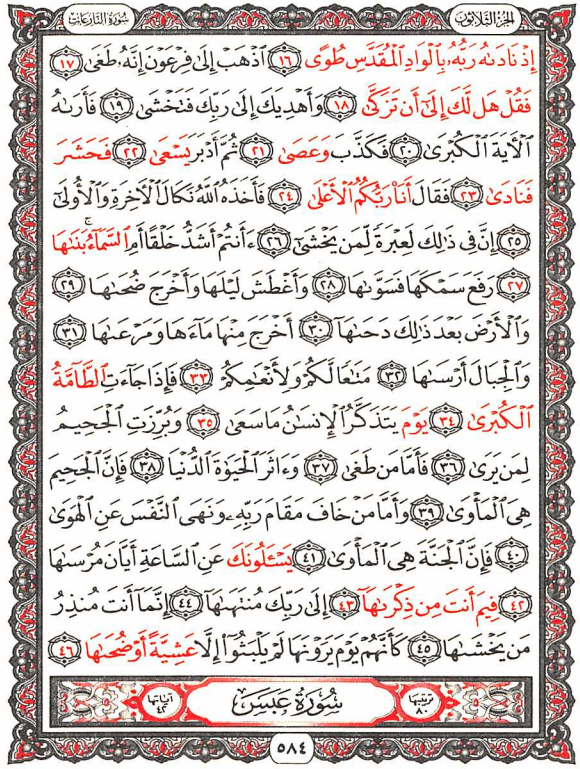 الجزء الثلاثون
سورة النازعات
إِذْ نَادَىٰهُ رَبُّهُۥ بِٱلْوَادِ ٱلْمُقَدَّسِ طُوًى ١٦ ٱذْهَبْ إِلَىٰ فِرْعَوْنَ إِنَّهُۥ طَغَىٰ ١٧
فَقُلْ هَل لَّكَ إِلَىٰٓ أَن تَزَكَّىٰ ١٨ وَأَهْدِيَكَ إِلَىٰ رَبِّكَ فَتَخْشَىٰ ١٩ فَأَرَىٰهُ
ٱلْأَيَةَ ٱلْكُبْرَىٰ ٢٠ فَكَذَّبَ وَعَصَىٰ ٢١ ثُمَّ أَدْبَرَ يَسْعَىٰ ٢٢ فَحَشَرَ
فَنَادَىٰ ٢٣ فَقَالَ أَنَا۠ رَبُّكُمُ ٱلْأَعْلَىٰ ٢٤ فَأَخَذَهُ ٱللَّهُ نَكَالَ ٱلْأَخِرَةِ وَٱلْأُولَىٰٓ
٢٥ إِنَّ فِى ذَٰلِكَ لَعِبْرَةً لِّمَن يَخْشَىٰٓ ٢٦ ءَأَنتُمْ أَشَدُّ خَلْقًا أَمِ ٱلسَّمَآءُ ۚ بَنَىٰهَا
٢٧ رَفَعَ سَمْكَهَا فَسَوَّىٰهَا ٢٨ وَأَغْطَشَ لَيْلَهَا وَأَخْرَجَ ضُحَىٰهَا ٢٩
وَٱلْأَرْضَ بَعْدَ ذَٰلِكَ دَحَىٰهَآ ٣٠ أَخْرَجَ مِنْهَا مَآءَهَا وَمَرْعَىٰهَا ٣١
وَٱلْجِبَالَ أَرْسَىٰهَا ٣٢ مَتَٰعًا لَّكُمْ وَلِأَنْعَٰمِكُمْ ٣٣ فَإِذَا جَآءَتِ ٱلطَّآمَّةُ
ٱلْكُبْرَىٰ ٣٤ يَوْمَ يَتَذَكَّرُ ٱلْإِنسَٰنُ مَا سَعَىٰ ٣٥ وَبُرِّزَتِ ٱلْجَحِيمُ
لِمَن يَرَىٰ ٣٦ فَأَمَّا مَن طَغَىٰ ٣٧ وَءَاثَرَ ٱلْحَيَوٰةَ ٱلدُّنْيَا ٣٨ فَإِنَّ ٱلْجَحِيمَ
هِىَ ٱلْمَأْوَىٰ ٣٩ وَأَمَّا مَنْ خَافَ مَقَامَ رَبِّهِۦ وَنَهَى ٱلنَّفْسَ عَنِ ٱلْهَوَىٰ
٤٠ فَإِنَّ ٱلْجَنَّةَ هِىَ ٱلْمَأْوَىٰ ٤١ يَسْـَٔلُونَكَ عَنِ ٱلسَّاعَةِ أَيَّانَ مُرْسَىٰهَا
٤٢ فِيمَ أَنتَ مِن ذِكْرَىٰهَآ ٤٣ إِلَىٰ رَبِّكَ مُنتَهَىٰهَآ ٤٤ إِنَّمَآ أَنتَ مُنذِرُ
مَن يَخْشَىٰهَا ٤٥ كَأَنَّهُمْ يَوْمَ يَرَوْنَهَا لَمْ يَلْبَثُوٓا۟ إِلَّا عَشِيَّةً أَوْ ضُحَىٰهَا ٤٦
ترتيبها ٨٠
سُورَةُ عَبَسَ
آياتها ٤٢
٥٨٤